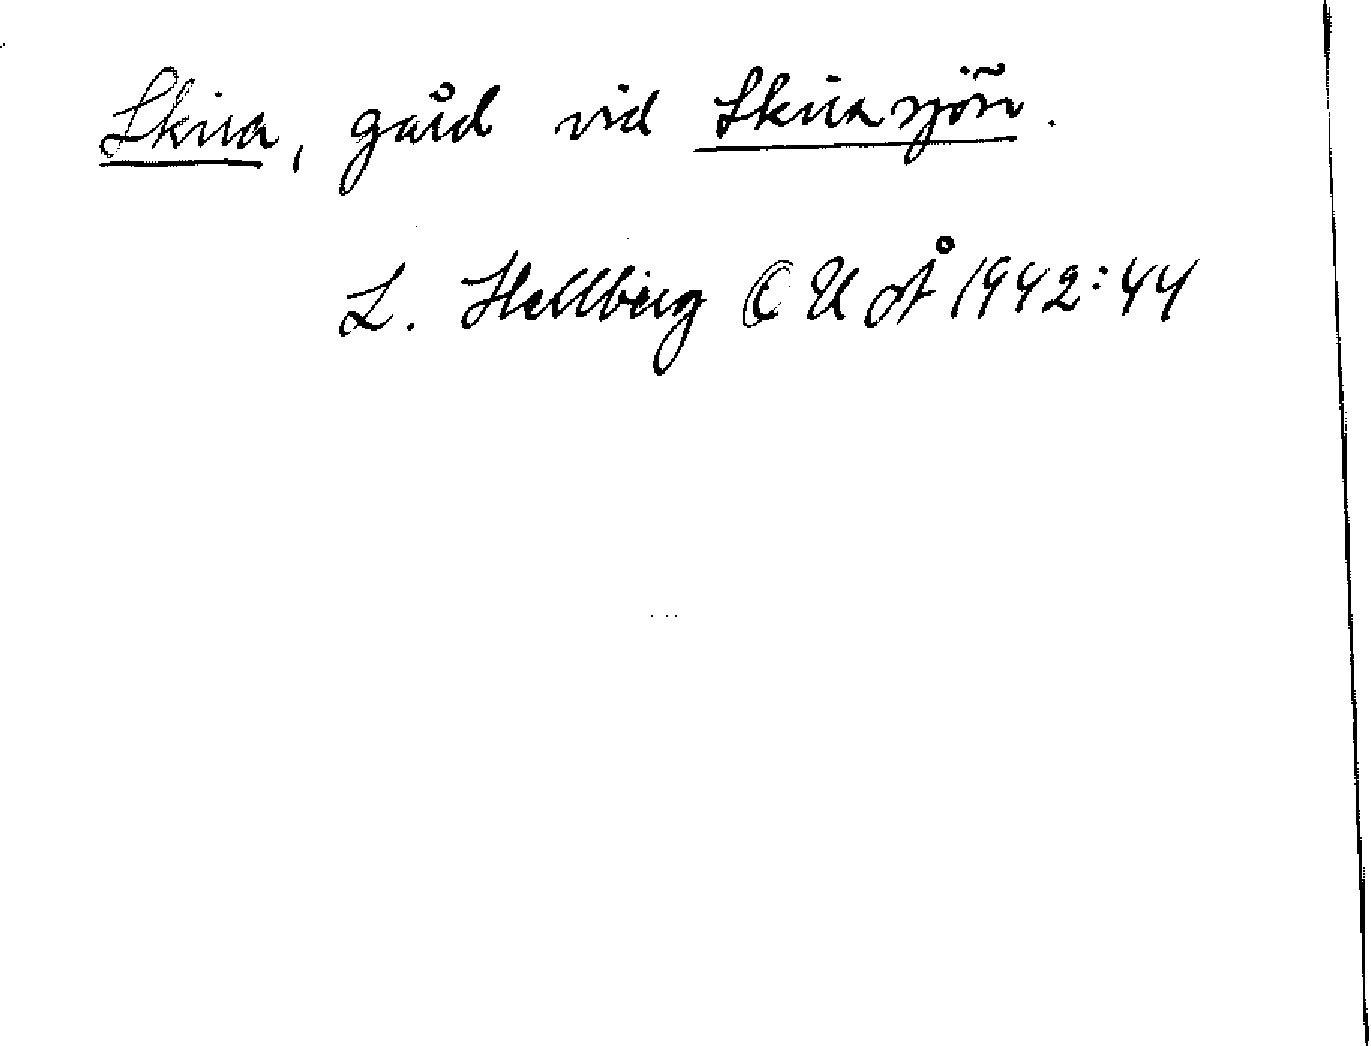 Skira, gård vid Skirasjön.
L. Hellberg OUÅ 1942:44